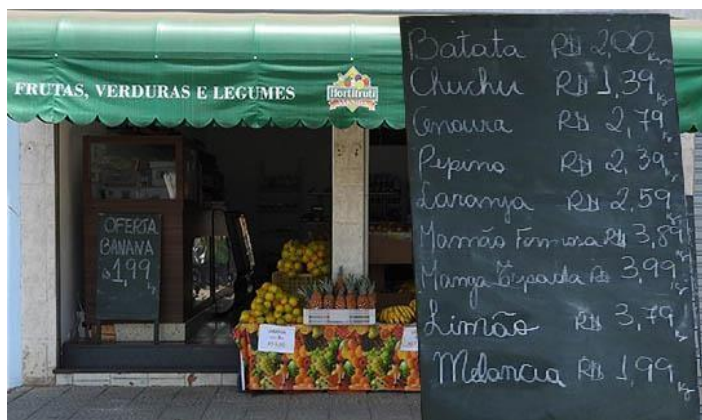 FRUTAS, VERDURAS E LEGUMES
Hortifruti
OFERTA
BANANA
1,99
Batata R$ 2,00 Kg
Chuchu R$ 1,39 Kg
Cenoura R$ 2,79 Kg
Pepino R$ 2,39 Kg
Laranja R$ 2,59 Kg
Mamão Formosa R$ 3,89 Kg
Manga Espada R$ 3,99 Kg
Limão R$ 3,79 Kg
Melancia R$ 1,99 Kg